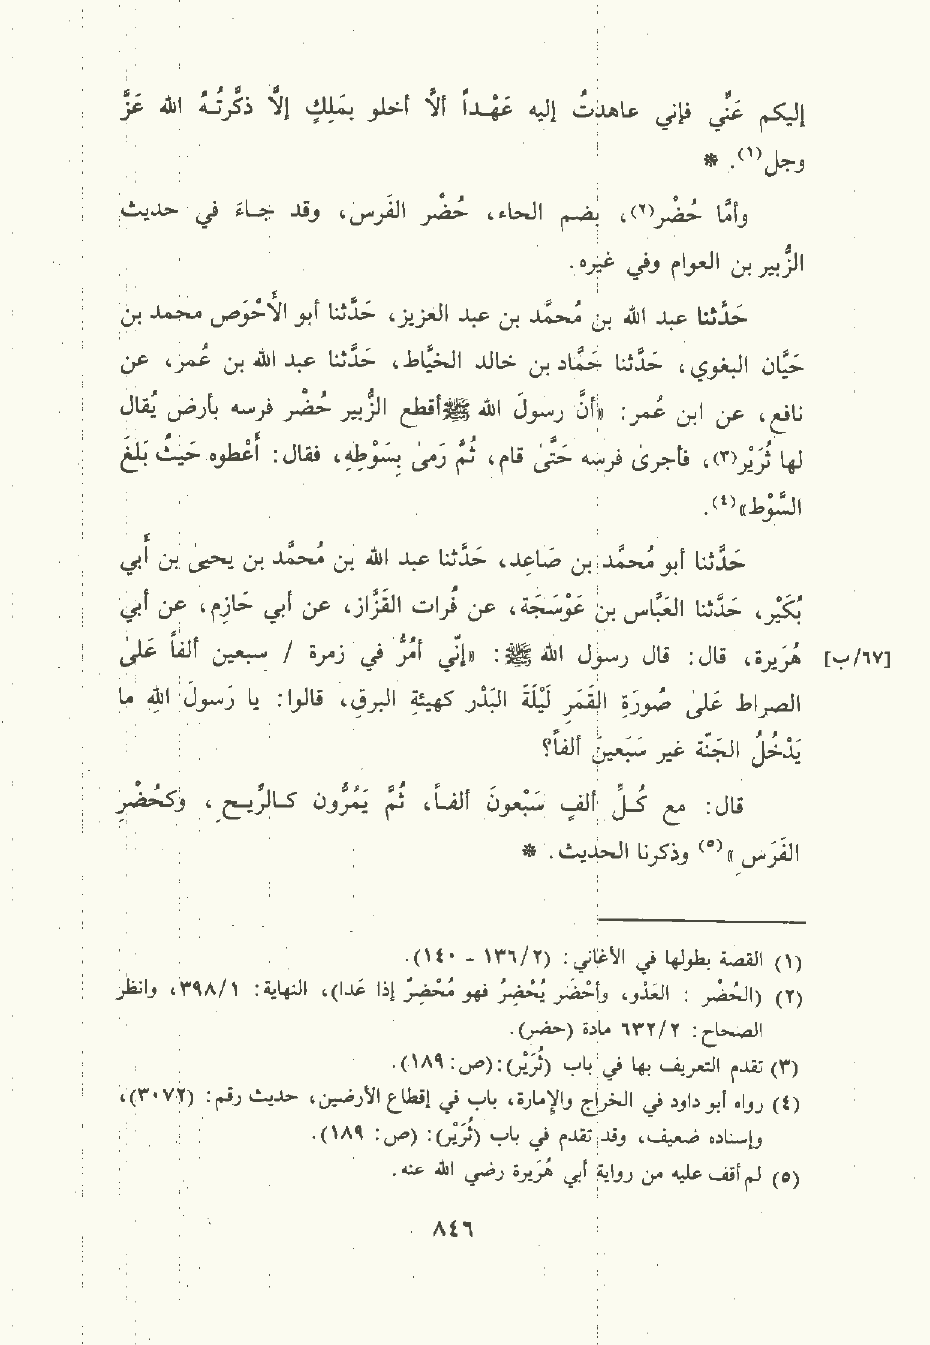 إليكم عَنِّي فإني عاهدتُ إليه عَهْـداً ألَّا أخلو بمَلِكٍ إلَّا ذكَّرتُـهُ الله عَزَّ
وجل(١). *
وأمَّا حُضْر(٢)، بضم الحاء، حُضْر الفَرس، وقد جـاءَ في حديث
الزُّبير بن العوام وفي غيره.
حَدَّثنا عبد الله بن مُحمَّد بن عبد العزيز، حَدَّثنا أبو الأَحْوَص محمد بن
حَيَّان البغوي، حَدَّثنا حَمَّاد بن خالد الخيَّاط، حَدَّثنا عبد الله بن عُمر، عن
نافع، عن ابن عُمر: «أنَّ رسولَ الله ﷺ أقطع الزُّبير حُضْر فرسه بأرض يُقال
لها ثُرَيْر(٣)، فأجرىٰ فرسه حَتَّىٰ قام، ثُمَّ رَمىٰ بِسَوْطِهِ، فقال: أَعْطوه حَيثُ بَلَغَ
السَّوْط»(٤).
حَدَّثنا أبو مُحمَّد بن صَاعِد، حَدَّثنا عبد الله بن مُحمَّد بن يحيىٰ بن أَبي
بُكَيْر، حَدَّثنا العبَّاس بن عَوْسَجَة، عن فُرات القَزَّاز، عن أبي حَازِم، عن أبي
[٦٧/ب] هُرَيرة، قال: قال رسول الله ﷺ: «إنّي أُمُرُّ في زمرة / سبعين ألفاً عَلىٰ
الصراط عَلىٰ صُورَةِ القَمَرِ لَيْلَةَ البَدْرِ كهيئةِ البرقِ، قالوا: يا رَسولَ اللهِ ما
يَدْخُلُ الجَنّة غير سَبَعينَ ألفاً؟
قال: مع كُـلِّ ألفٍ سَبْعونَ ألفـاً، ثُمَّ يَمُرُّون كـالرِّيـحِ، وكحُضْرِ
الفَرَسِ»(٥) وذكرنا الحديث. *
(١) القصة بطولها في الأغاني: (٢/ ١٣٦ - ١٤٠).
(٢) (الحُضْر: العَدْو، وأحْضَر يُحْضِرُ فهو مُحْضِرٌ إذا عَدا)، النهاية: ١/ ٣٩٨، وانظر
الصحاح: ٢/ ٦٣٢ مادة (حضر).
(٣) تقدم التعريف بها في باب (ثُرَيْر):(ص: ١٨٩).
(٤) رواه أبو داود في الخراج والإمارة، باب في إقطاع الأرضين، حديث رقم: (٣٠٧٢)،
وإسناده ضعيف، وقد تقدم في باب (ثُرَيْر): (ص: ١٨٩).
(٥) لم أقف عليه من رواية أبي هُرَيرة رضي الله عنه.
٨٤٦